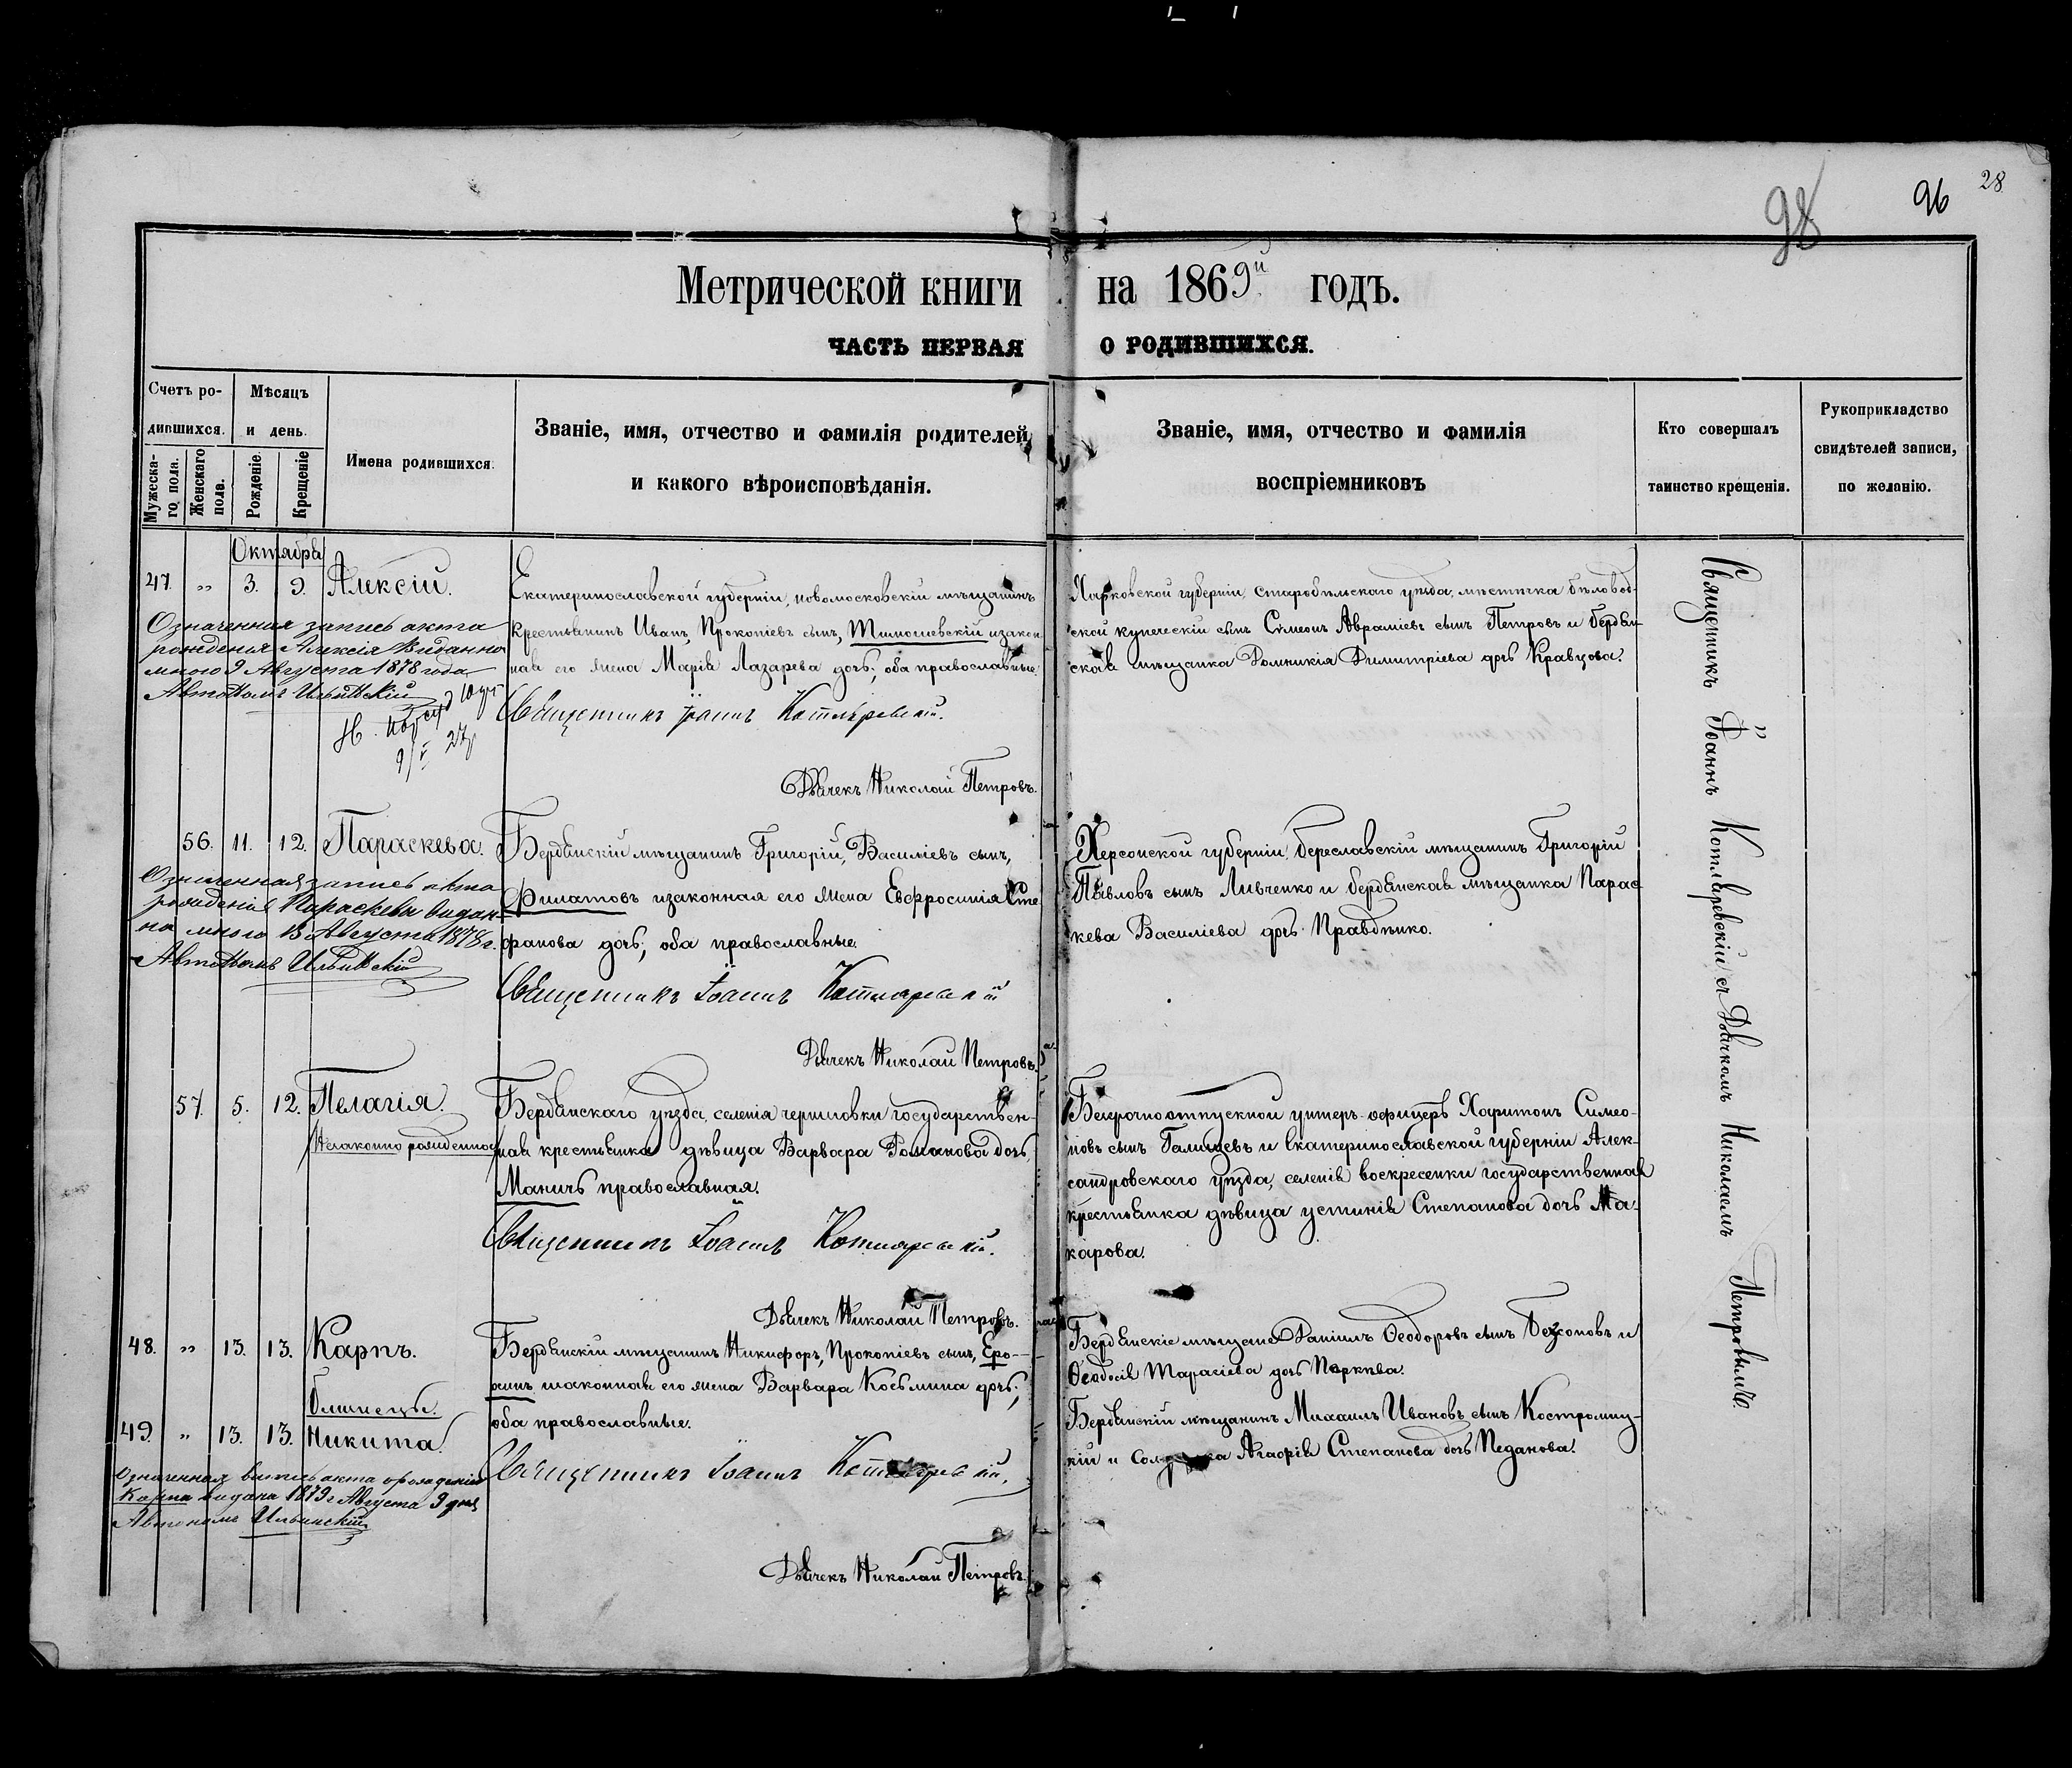 28
96
98
Метрической книги на 1869й годъ.
ЧАСТЬ ПЕРВАЯ О РОДИВШИХСЯ.
Счетъ ро-
дившихся.
Мѣсяцъ
и день.
Мужеска-
го пола.
Женскаго
пола.
Рожденіе.
Крещеніе
Имена родившихся.
Званіе, имя, отчество и фамилія родителей,
и какого вѣроисповѣданія.
Званіе, имя, отчество и фамилія
воспріемниковъ
Кто совершалъ
таинство крещенія.
Рукоприкладство
свидѣтелей записи,
по желанію.
Октября
47. „ 3. 9. Алексій.
Екатеринославской губерніи, новомосковскій мѣщанинъ
крестьянинъ Иванъ, Прокопіевъ сынъ, Тимошевскій и закон
ная его жена Марія Лазарева дочь; оба православные.
Священникъ Іоаннъ Котляревскій.
Дьячекъ Николай Петровъ.
Харковской губерніи, Старобѣльскаго уѣзда, мѣстечка бѣловод-
ской купеческій сынъ Симеонъ Авраміевъ сынъ Петровъ и бердян-
ская мѣщанка Домникія Димитріева дочь Кравцова.
Означенная запись акта
рожденія Алексія Виданно
мною 9 Августа 1878 года
Автономъ Ильинскій
56. 11. 12. Параскева.
Бердянскій мѣщанинъ Григорій, Василіевъ сынъ,
Филатовъ и законная его жена Евфросинія Сте
фанова дочь; оба православные.
Священникъ Іоаннъ Котляревскій
Дьячекъ Николай Петровъ.
Херсонской губерніи, береславскій мѣщанинъ Григорій
Павловъ сынъ Ливченко и бердянская мѣщанка Парас
кева Василіева дочь Правдѣнко.
Означенная запись акта
рожденія Параскевы видан-
на мною 13 Августа 1878 г.
Автономъ Ильинскій
57. 5. 12. Пелагія.
Незаконно рожденная
Бердянскаго уѣзда, селенія черниговки государствен-
ная крестьянка дѣвица Варвара Романова дочь,
Маничъ православная.
Священникъ Іоаннъ Котляревскій.
Дьячекъ Николай Петровъ.
Безсрочноотпускной унтеръ-офицеръ Харитонъ Симео-
новъ сынъ Галицевъ и Екатеринославской губерніи Алек-
сандровскаго уѣзда, селенія воскресенки государственная
крестьянка дѣвица устинія Степанова дочь Ма-
карова.
48. „ 13. 13. Карпъ.
Близнецы.
49. „ 13. 13. Никита.
Бердянскій мѣщанинъ Никифоръ, Прокопіевъ сынъ,
законная его жена Варвара Косьмина дочь;
оба православные.
Священникъ Іоаннъ Котляревскій.
Дьячекъ Николай Петровъ.
Бердянскіе мѣщане Даніилъ Ѳеодоровъ сынъ и
Ѳеодосія Тарасіева дочь
Бердянскій мѣщанинъ Михаилъ Ивановъ сынъ Костромиц-
кій и Агафія Степанова дочь Педанова.
Означенная выпись акта о рожденіи
Карпа видана 1879 г Августа 9 дня
Автономъ Ильинскій
Священникъ Іоаннъ Котляревскій съ Дьячкомъ Николаемъ Петровымъ.